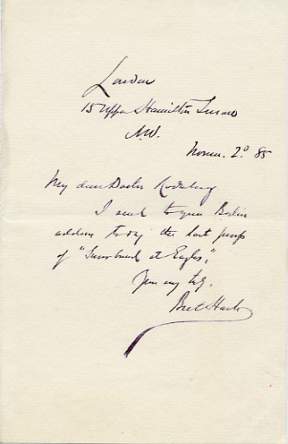 London
15 Upper Hamilton Terrace
N.W.
Novem. 2d 85
My dear Doctor Rodenberg
I send to your Berlin
address to day the last proofs
of "Snowbound at Eagles,"
Bret Harte